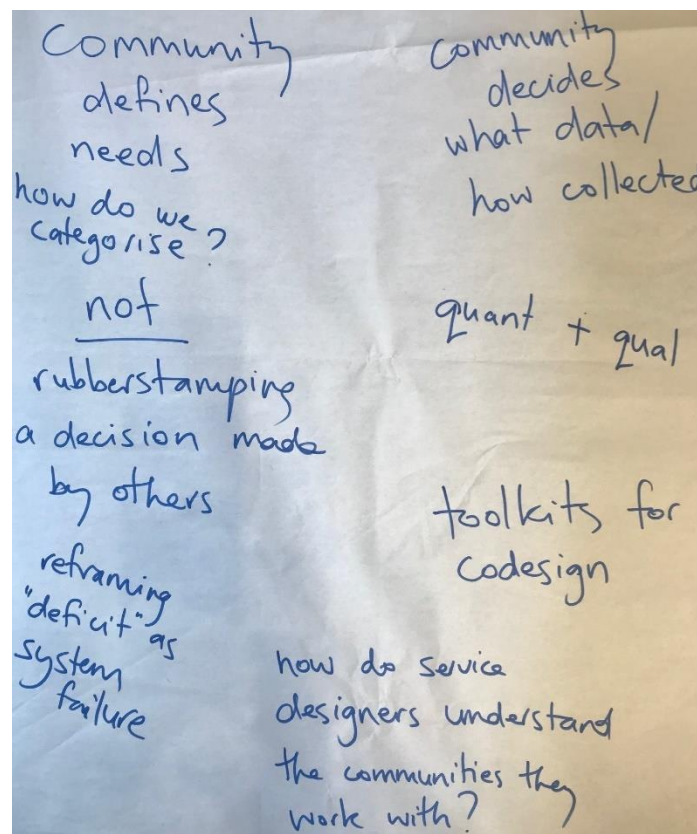 Community
defines
needs
how do we
categorise?
not
rubberstamping
a decision made
by others
reframing
"deficit" as
system
failure
Community
decides
what data/
how collected
quant + qual
toolkits for
codesign
how do service
designers understand
the communities they
work with?